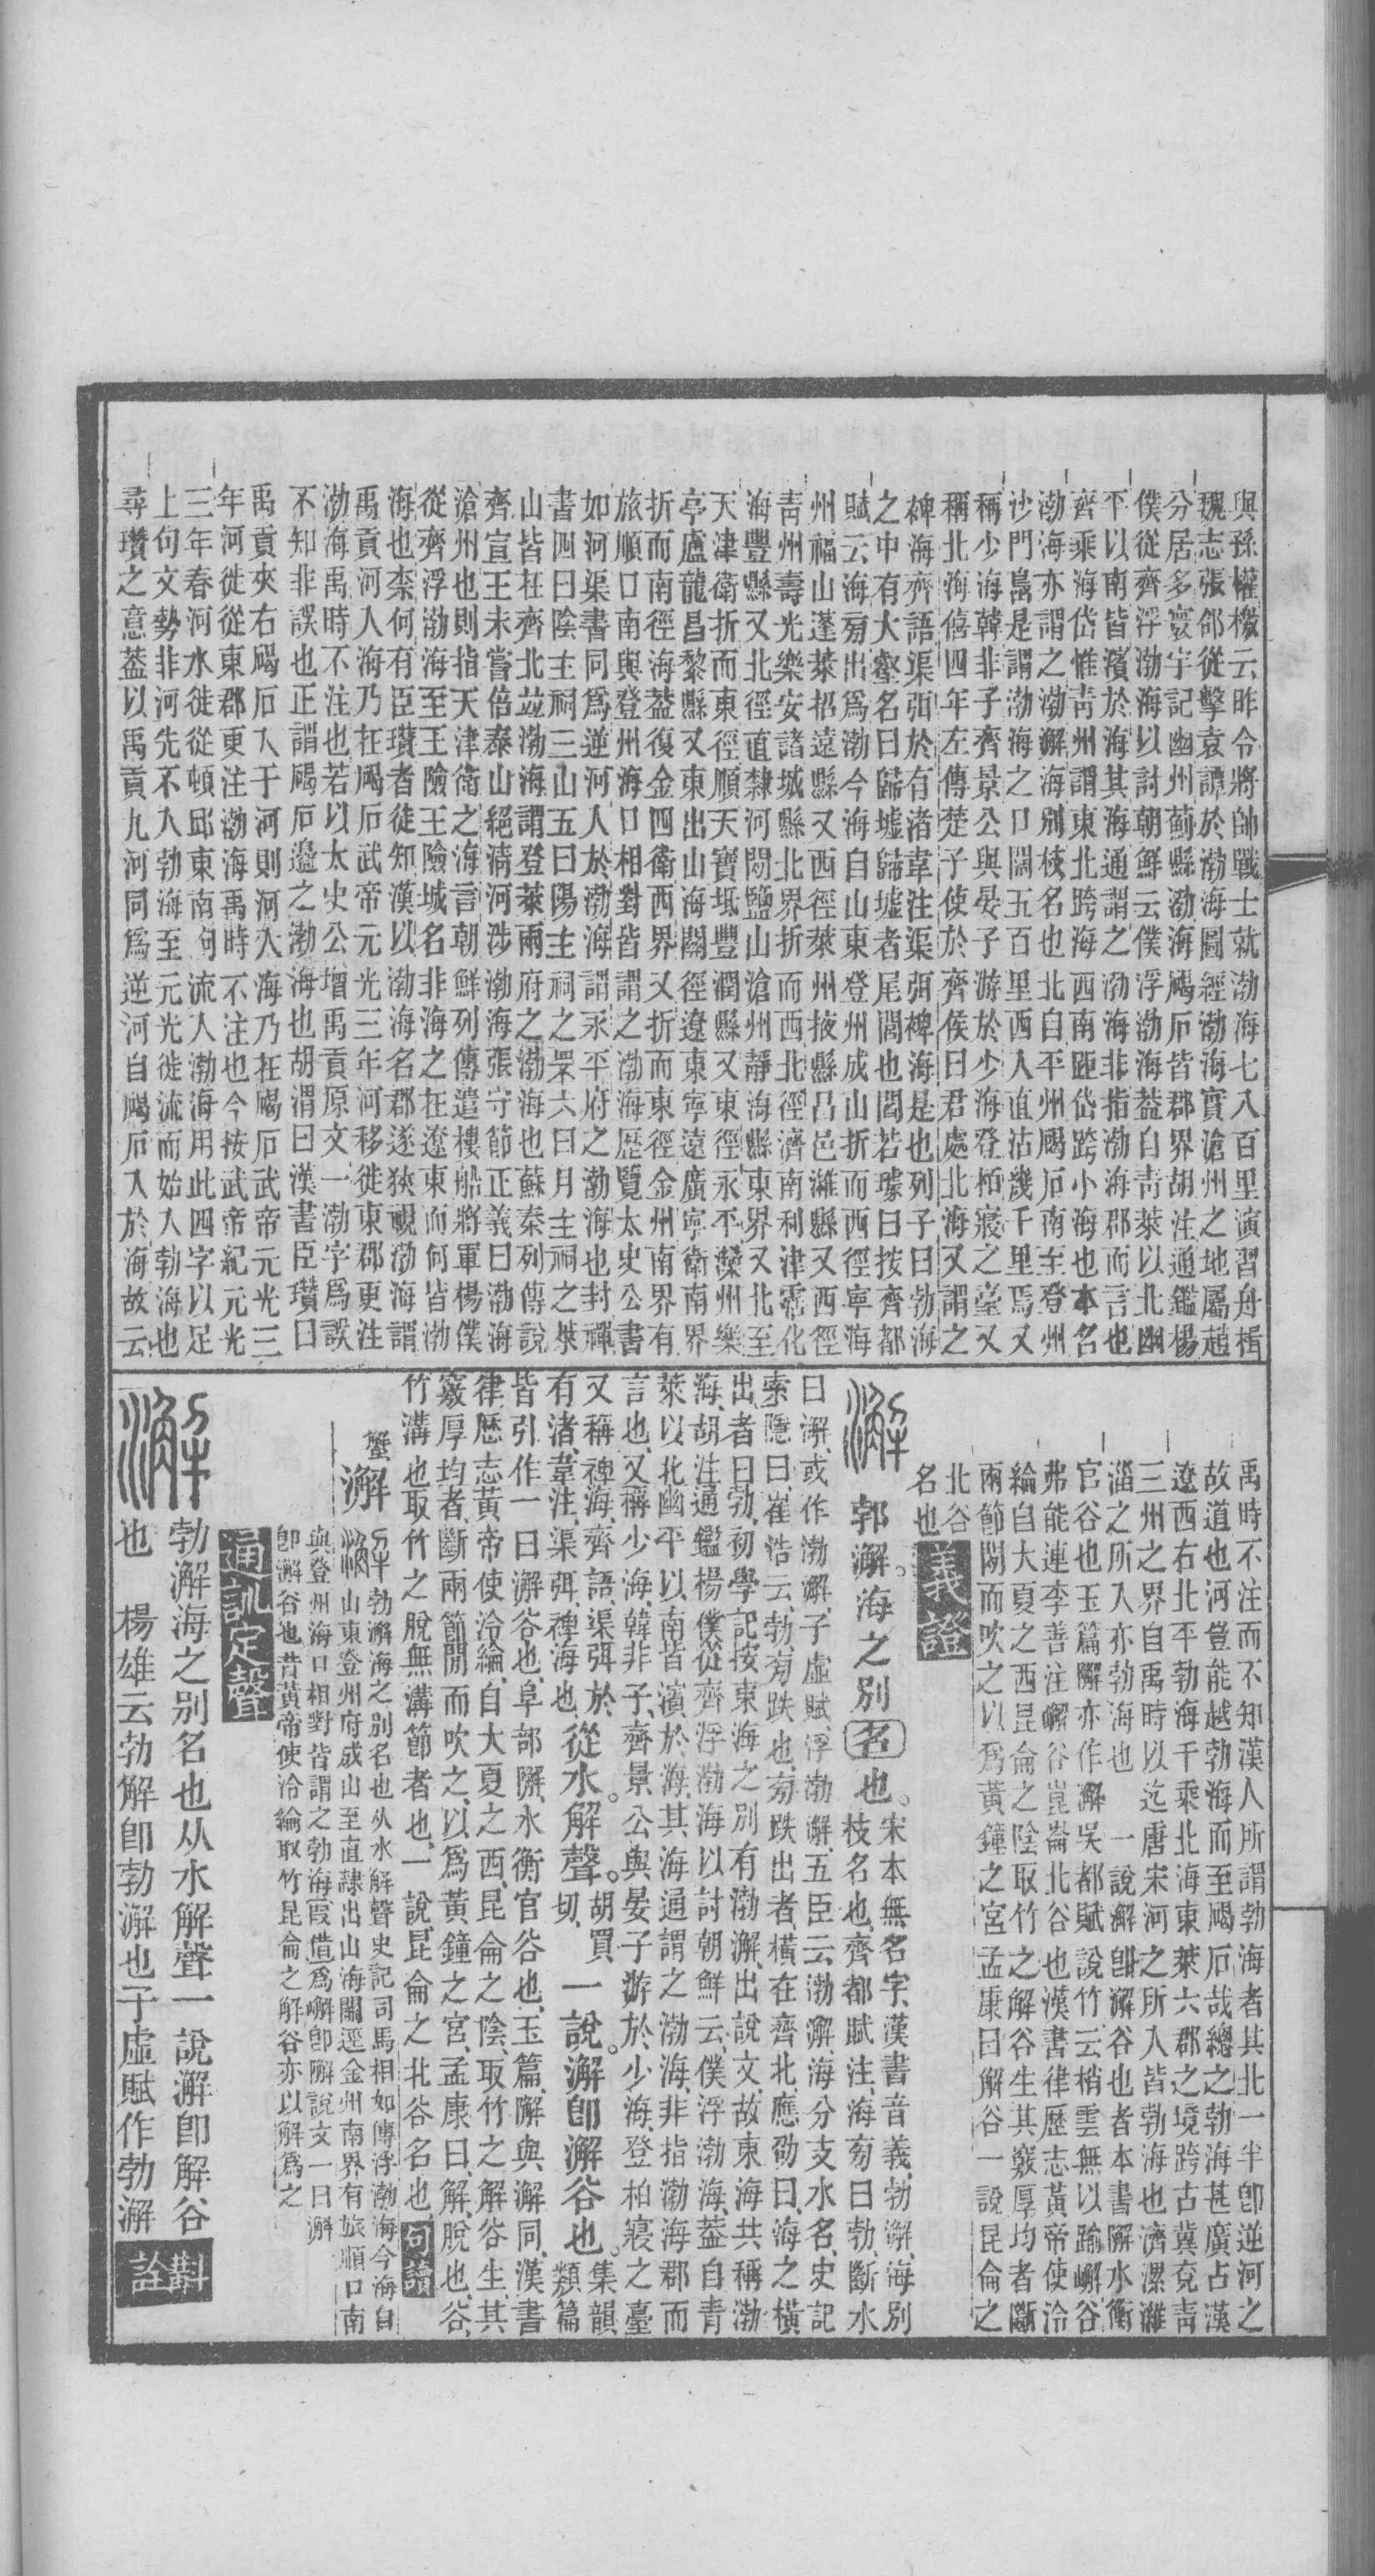 與孫權檄云昨令將帥戰士就渤海七八百里演習舟楫
魏志張郃從擊袁譚於渤海圖經渤海實滄州之地屬趙
分居多寰宇記幽州薊縣渤海碣石皆郡界胡注通鑑楊
僕從齊浮渤海以討朝鮮云僕浮渤海葢自青萊以北幽
平以南皆濱於海其海通謂之渤海非指渤海郡而言也
齊乘海岱惟青州謂東北跨海西南距岱跨小海也本名
渤海亦謂之渤澥海別枝名也北自平州碣石南至登州
沙門島是謂渤海之口闊五百里西入直沽幾千里焉又
稱少海韓非子齊景公與晏子游於少海登栢寢之臺又
稱北海僖四年左傳楚子使於齊侯曰君處北海又謂之
裨海齊語渠弭於有渚韋注渠弭裨海是也列子曰勃海
之中有大壑名曰歸墟歸墟者尾閭也閻若璩曰按齊都
賦云海旁出爲渤今海自山東登州成山折而西徑寧海
州福山蓬萊招遠縣又西徑萊州掖縣昌邑濰縣又西徑
青州壽光樂安諸城縣北界折而西北徑濟南利津霑化
海豐縣又北徑直隸河閒鹽山滄州靜海縣東界又北至
天津衛折而東徑順天寶坻豐潤縣又東徑永平灤州樂
亭盧龍昌黎縣又東出山海關徑遼東寧遠廣寧衛南界
折而南徑海葢復金四衛西界又折而東徑金州南界有
旅順口南與登州海口相對皆謂之渤海歴覽太史公書
如河渠書同爲逆河人於渤海謂永平府之渤海也封禪
書四曰陰主祠三山五曰陽主祠之罘六曰月主祠之萊
山皆在齊北竝渤海謂登萊兩府之渤海也蘇秦列傳說
齊宣王未嘗倍泰山絕清河涉渤海張守節正義曰渤海
滄州也則指天津衛之海言朝鮮列傳遣樓船將軍楊僕
從齊浮渤海至王險王險城名非海之在遼東而何皆渤
海也柰何有臣瓚者徒知漢以渤海名郡遂狹視渤海謂
禹貢河人海乃在碣石武帝元光三年河移徙東郡更注
渤海禹時不注也若以太史公增禹貢原文一渤字爲誤
不知非誤也正謂碣石邉之渤海也胡渭曰漢書臣瓚曰
禹貢夾右碣石入于河則河入海乃在碣石武帝元光三
年河徙從東郡更注渤海禹時不注也今按武帝紀元光
三年春河水徙從頓邱東南向流人渤海用此四字以足
上句文勢非河先不入勃海至元光徙流而始入勃海也
尋瓚之意葢以禹貢九河同爲逆河自碣石入於海故云
禹時不注而不知漢人所謂勃海者其北一半卽逆河之
故道也河豈能越勃海而至碣石哉總之勃海甚廣占漢
遼西右北平勃海千乘北海東萊六郡之境跨古冀兗靑
三州之界自禹時以迄唐宋河之所入皆勃海也濟漯濰
淄之所入亦勃海也　一說澥卽澥谷也者本書解水衡
官谷也玉篇嶰亦作澥吳都賦說竹云梢雲無以踰嶰谷
弗能連李善注嶰谷崑崙北谷也漢書律歴志黃帝使泠
綸自大夏之西昆侖之陰取竹之解谷生其竅厚均者斷
兩節閒而吹之以爲黃鐘之宮孟康曰解谷一說昆侖之
北谷
名也
義證
澥 郭澥。海之別名也。宋本無名字、漢書音義、勃澥、海別
枝名也、齊都賦注、海旁曰勃、斷水
曰澥、或作渤澥、子虛賦、浮渤澥、五臣云、渤澥、海分支水名、史記
索隱曰、崔浩云、勃、旁跌也、旁跌出者、橫在齊北、應劭曰、海之橫
出者曰勃、初學記、按東海之別有渤澥、出說文、故東海共稱渤
海、胡注通鑑、楊僕從齊浮渤海以討朝鮮云、僕浮渤海、葢自青
萊以北、幽平以南、皆濱於海、其海通謂之渤海、非指渤海郡而
言也、又稱少海、韓非子、齊景公與晏子游於少海、登柏寢之臺
又稱裨海、齊語、渠弭於
有渚、韋注、渠弭、裨海也 從水。解聲。胡買切、一說。澥卽澥谷也。集韻、類篇
皆引作一曰澥谷也、𨸏部嶰、水衡官谷也、玉篇、嶰與澥同、漢書
律歷志、黃帝使泠綸、自大夏之西、昆侖之陰、取竹之解谷生、其
竅厚均者、斷兩節閒而吹之、以爲黃鐘之宮、孟康曰、解、脫也、谷、
竹溝也、取竹之脫無溝節者也、一說、昆侖之北谷名也、句讀
蟹 澥 澥勃澥海之別名也从水解聲史記司馬相如傳浮渤海今海自
山東登州府成山至直隸出山海關逕金州南界有旅順口南
與登州海口相對皆謂之勃海叚借爲嶰卽嶰說文一曰澥
卽澥谷也昔黃帝使泠綸取竹昆侖之解谷亦以解爲之
通訓定聲
澥 勃澥海之別名也从水解聲一說澥卽解谷
也　楊雄云勃解卽勃澥也子虛賦作勃解 斠詮